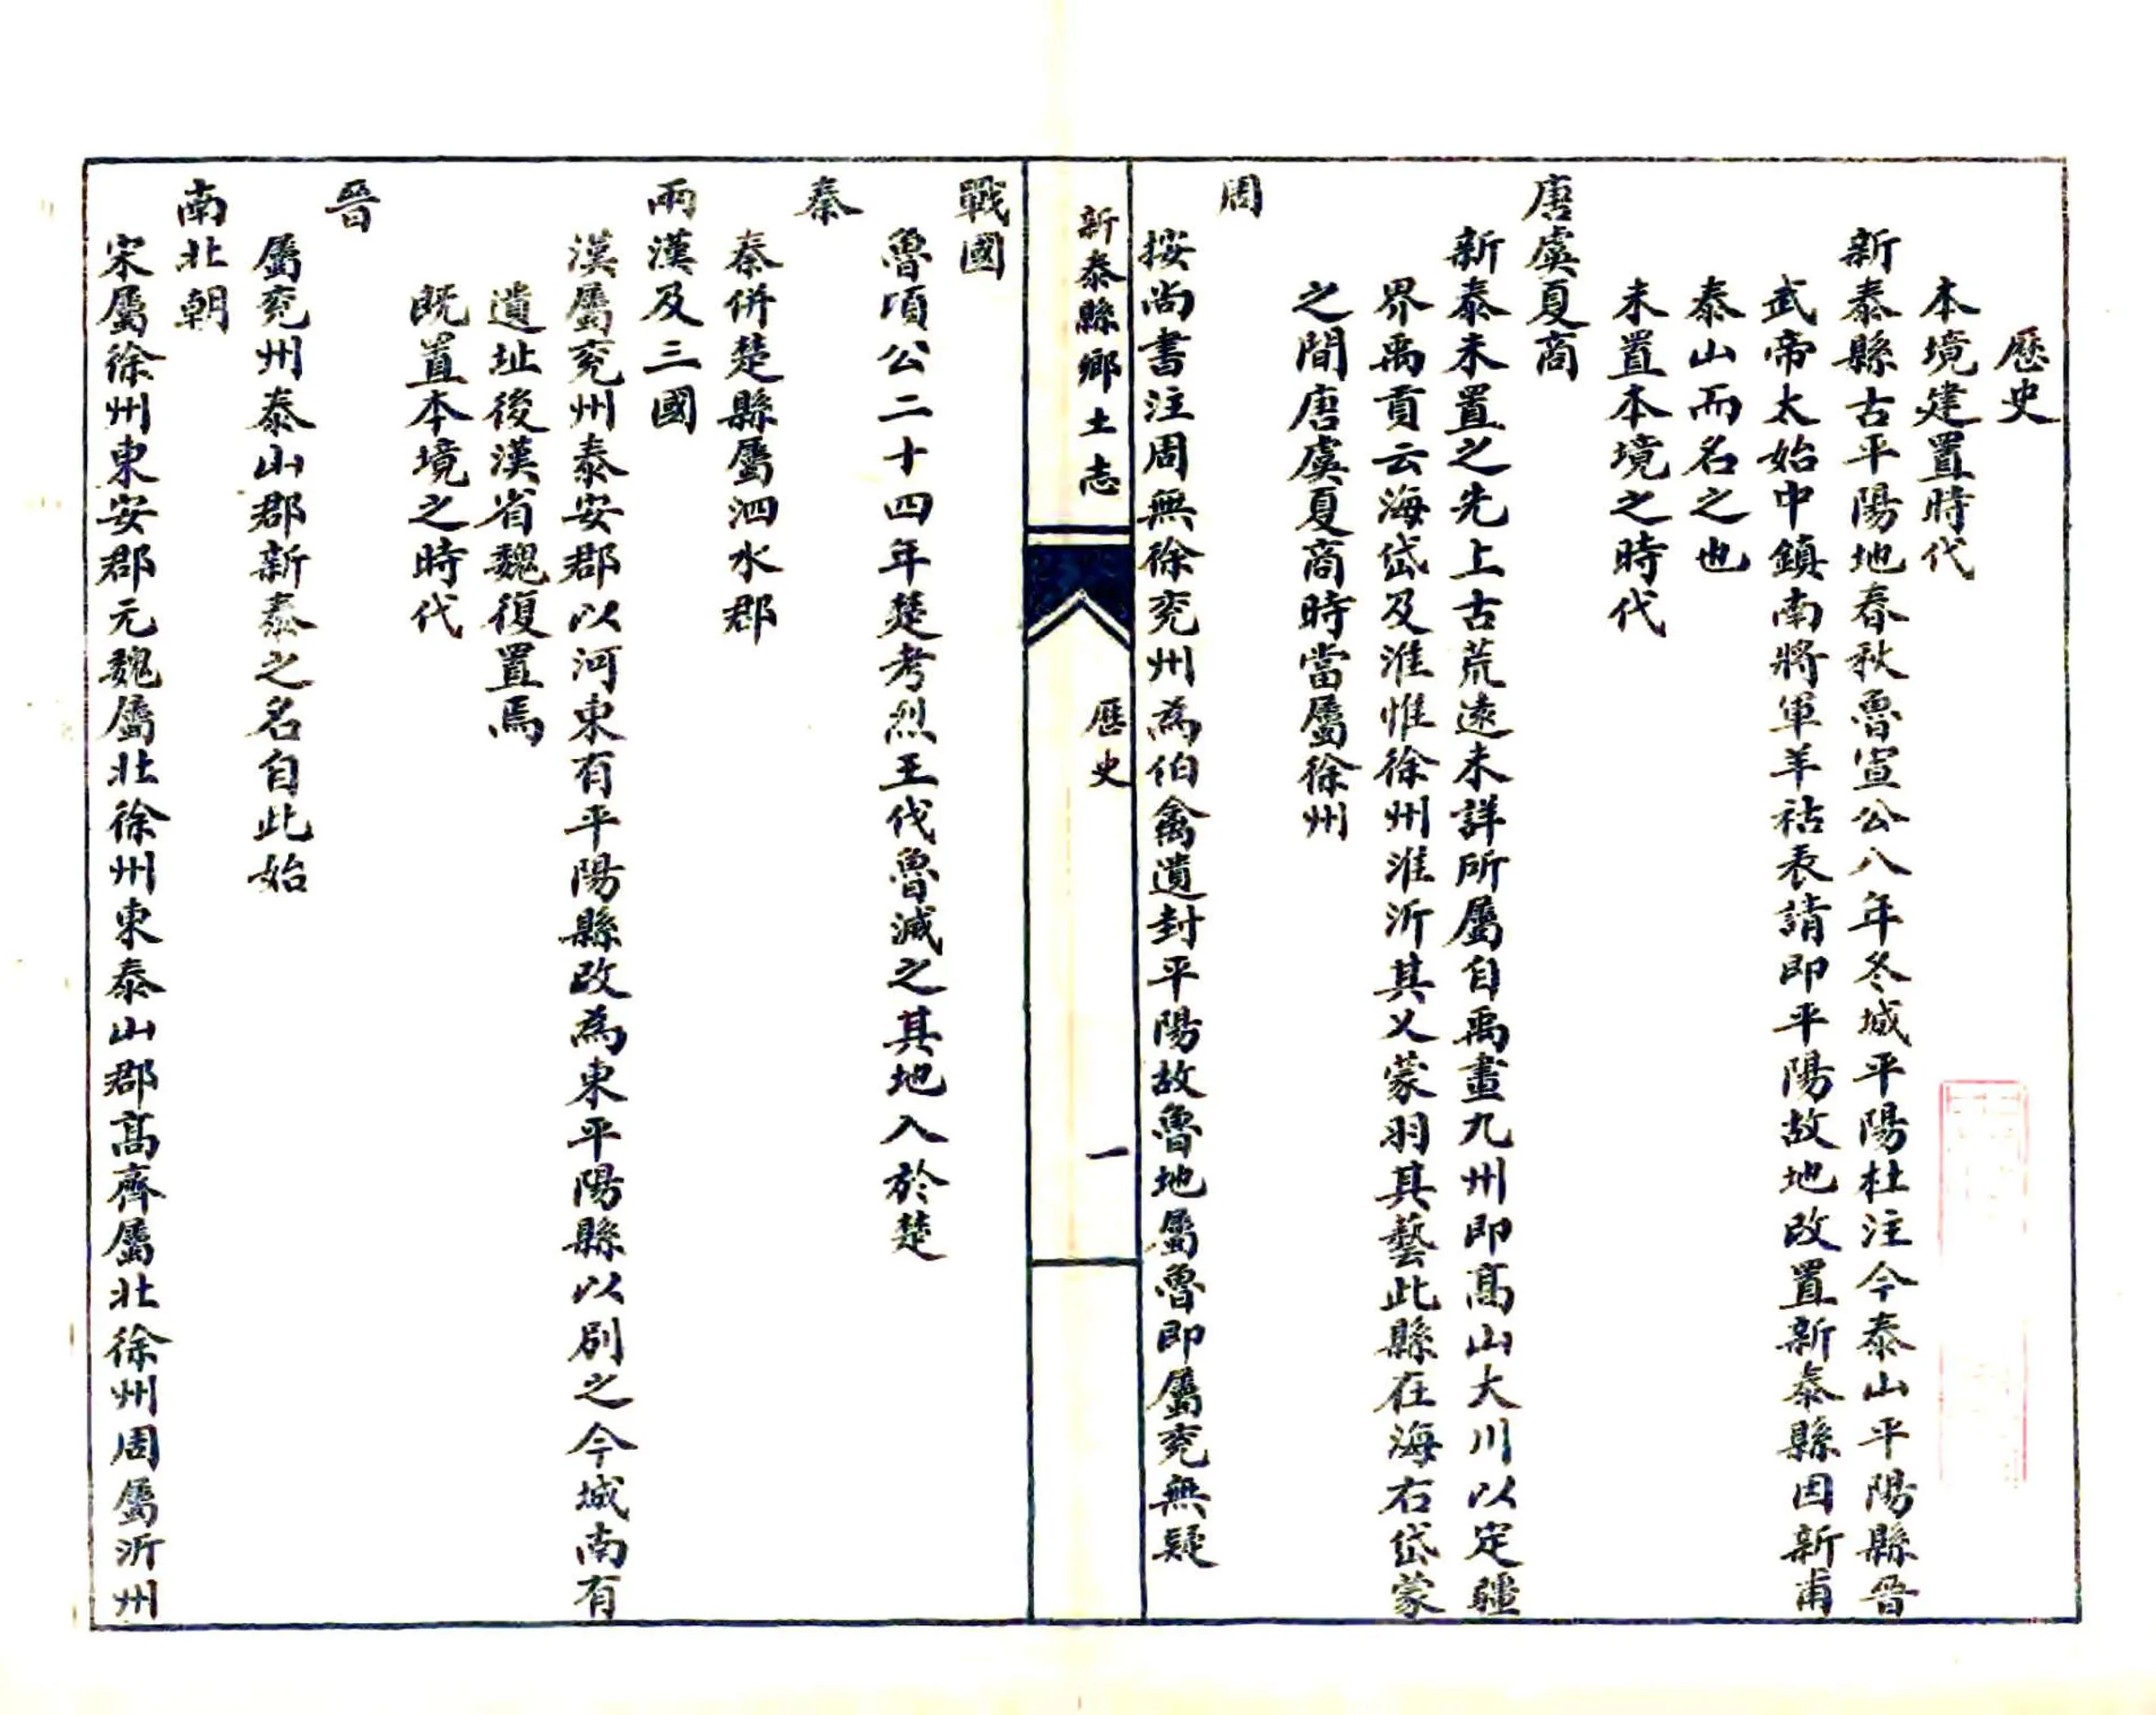 歷史
本境建置時代
新泰縣古平陽地春秋魯宣公八年冬城平陽杜注今泰山平陽縣晉
武帝太始中鎮南將軍羊祜表請即平陽故地改置新泰縣因新甫
泰山而名之也
未置本境之時代
唐虞夏商
新泰未置之先上古荒遠未詳所屬自禹畫九州即高山大川以定疆
界禹貢云海岱及淮惟徐州淮沂其乂蒙羽其藝此縣在海右岱蒙
之間唐虞夏商時當屬徐州
周
按尚書注周無徐兖州為伯禽遺封平陽故魯地屬魯即屬兖無疑
新泰縣鄉土志
歷史
一
戰國
魯頃公二十四年楚考烈王伐魯滅之其地入於楚
秦
秦併楚縣屬泗水郡
兩漢及三國
漢屬兖州泰安郡以河東有平陽縣改為東平陽縣以別之今城南有
遺址後漢省魏復置焉
既置本境之時代
晉
屬兖州泰山郡新泰之名自此始
南北朝
宋屬徐州東安郡元魏屬北徐州東泰山郡高齊屬北徐州周屬沂州